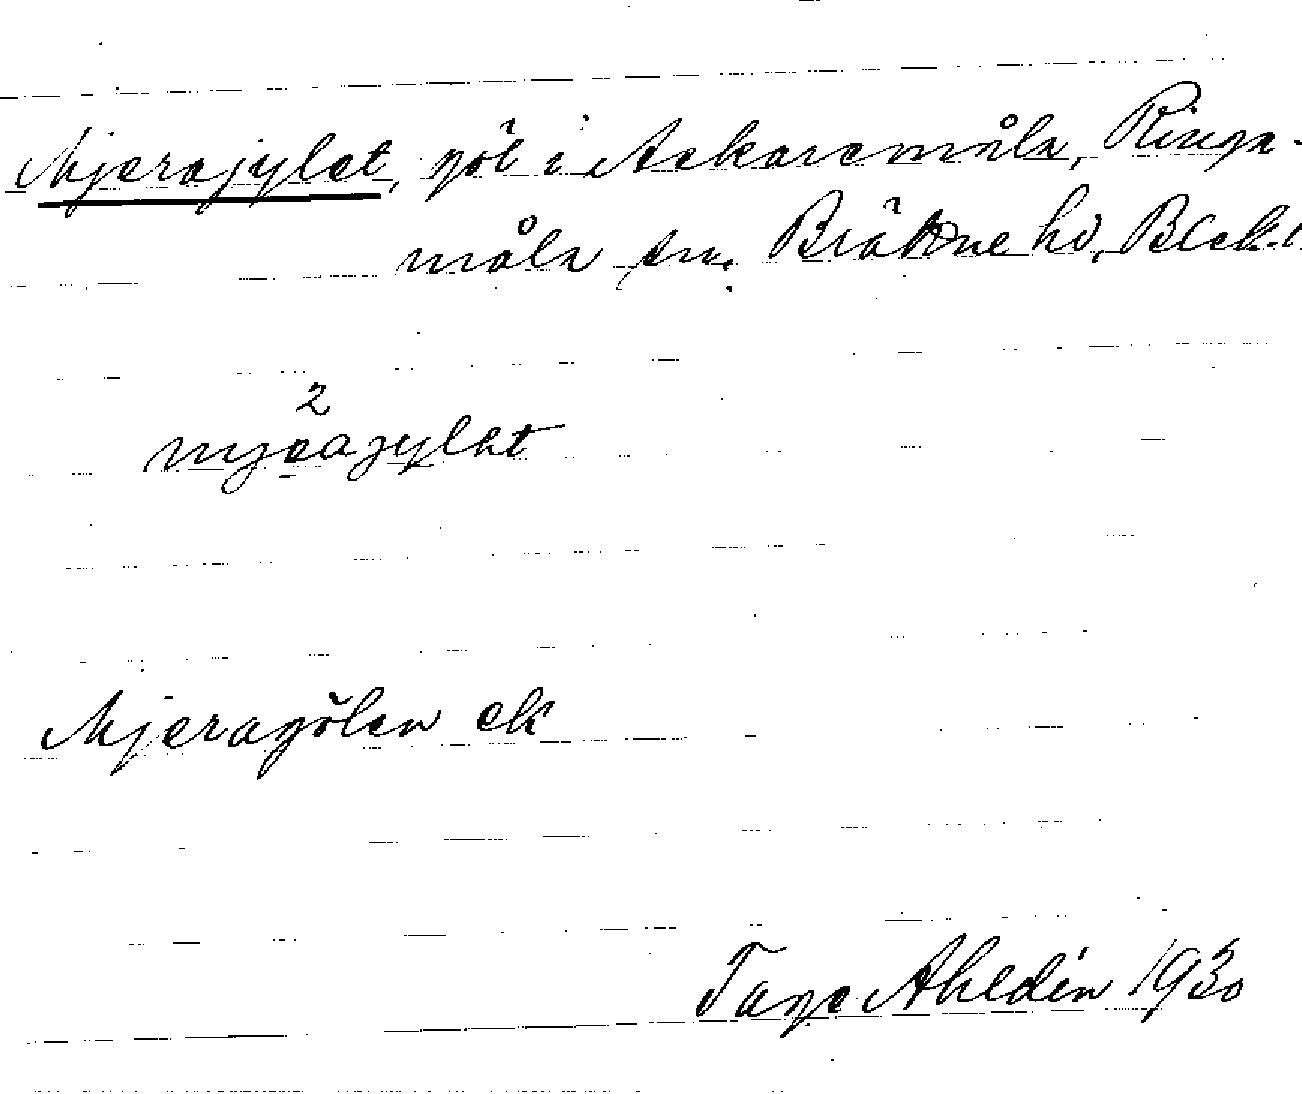 Mjerajylet, göl i Askaremåla, Ringa-
måla sn. Bräkne hd, Blek.
2
mjeajylet
Mjeragölen ek
Tage Ahldén 1930